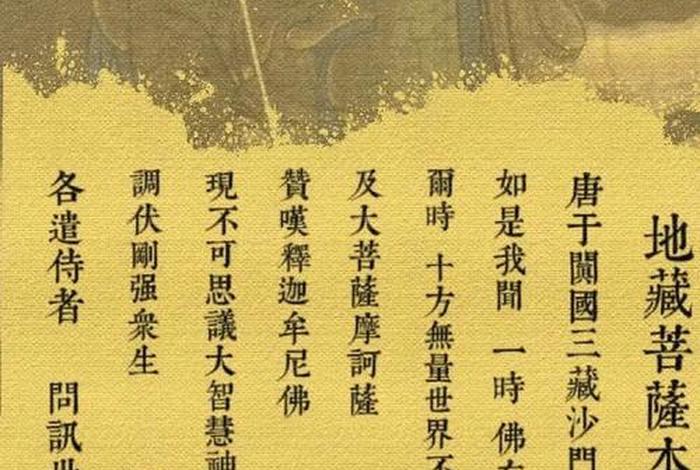 地藏菩薩本
唐于闐國三藏沙門
如是我聞 一時 佛在
爾時 十方無量世界不
及大菩薩摩訶薩
贊嘆釋迦牟尼佛
現不可思議大智慧神
調伏剛强衆生
各遣侍者 問訊世